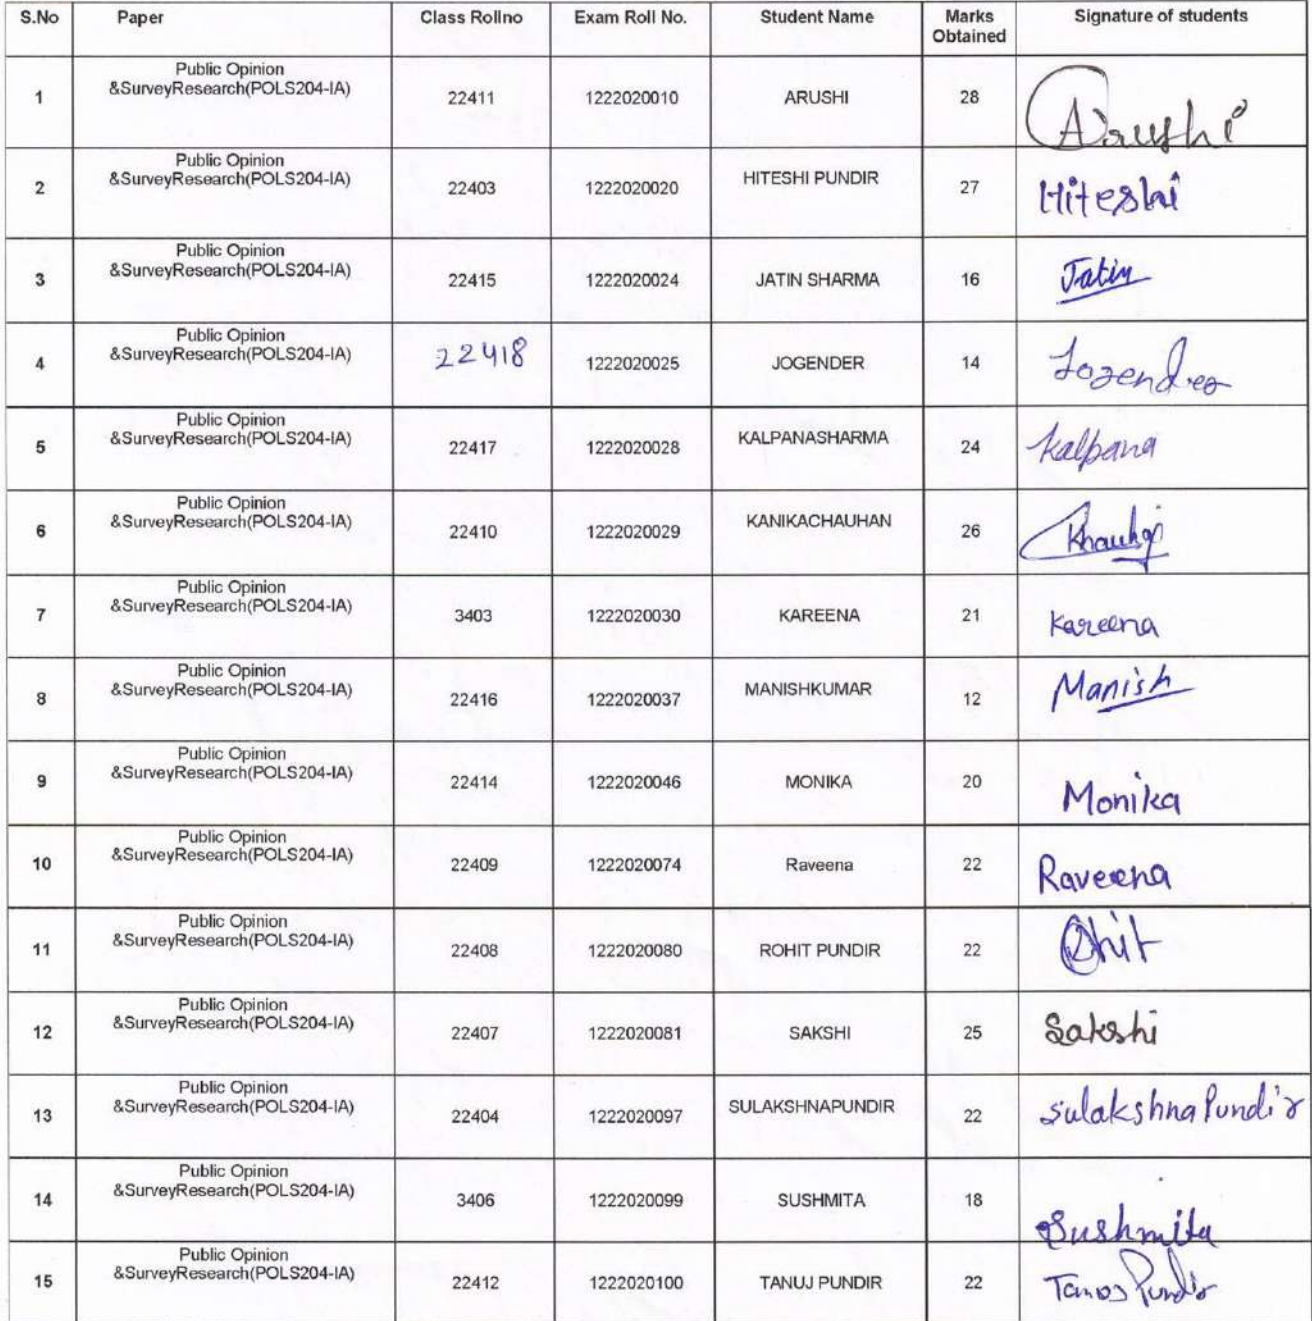 S.No Paper Class Rollno Exam Roll No. Student Name Marks Obtained Signature of students
Public Opinion
1 &SurveyResearch(POLS204-IA) 22411 1222020010 ARUSHI 28 Arushi
Public Opinion
2 &SurveyResearch(POLS204-IA) 22403 1222020020 HITESHI PUNDIR 27 Hiteshi
Public Opinion
3 &SurveyResearch(POLS204-IA) 22415 1222020024 JATIN SHARMA 16 Jatin
Public Opinion
4 &SurveyResearch(POLS204-IA) 22418 1222020025 JOGENDER 14 Jogender
Public Opinion
5 &SurveyResearch(POLS204-IA) 22417 1222020028 KALPANASHARMA 24 Kalpana
Public Opinion
6 &SurveyResearch(POLS204-IA) 22410 1222020029 KANIKACHAUHAN 26
Public Opinion
7 &SurveyResearch(POLS204-IA) 3403 1222020030 KAREENA 21 Kareena
Public Opinion
8 &SurveyResearch(POLS204-IA) 22416 1222020037 MANISHKUMAR 12 Manish
Public Opinion
9 &SurveyResearch(POLS204-IA) 22414 1222020046 MONIKA 20 Monika
Public Opinion
10 &SurveyResearch(POLS204-IA) 22409 1222020074 Raveena 22 Raveena
Public Opinion
11 &SurveyResearch(POLS204-IA) 22408 1222020080 ROHIT PUNDIR 22 Rohit
Public Opinion
12 &SurveyResearch(POLS204-IA) 22407 1222020081 SAKSHI 25 Sakshi
Public Opinion
13 &SurveyResearch(POLS204-IA) 22404 1222020097 SULAKSHNAPUNDIR 22 Sulakshna Pundir
Public Opinion
14 &SurveyResearch(POLS204-IA) 3406 1222020099 SUSHMITA 18 Sushmita
Public Opinion
15 &SurveyResearch(POLS204-IA) 22412 1222020100 TANUJ PUNDIR 22 Pundir